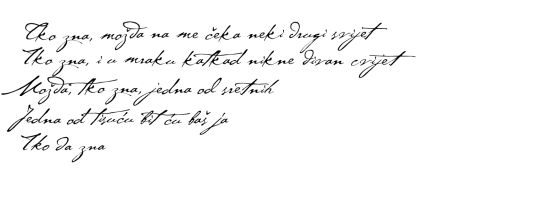 Tko zna, možda na me čeka neki drugi svijet
Tko zna, i u mraku katkad nikne divan cvijet
Možda, tko zna, jedna od sretnih
Jedna od tisuću bit ću baš ja
Tko da zna